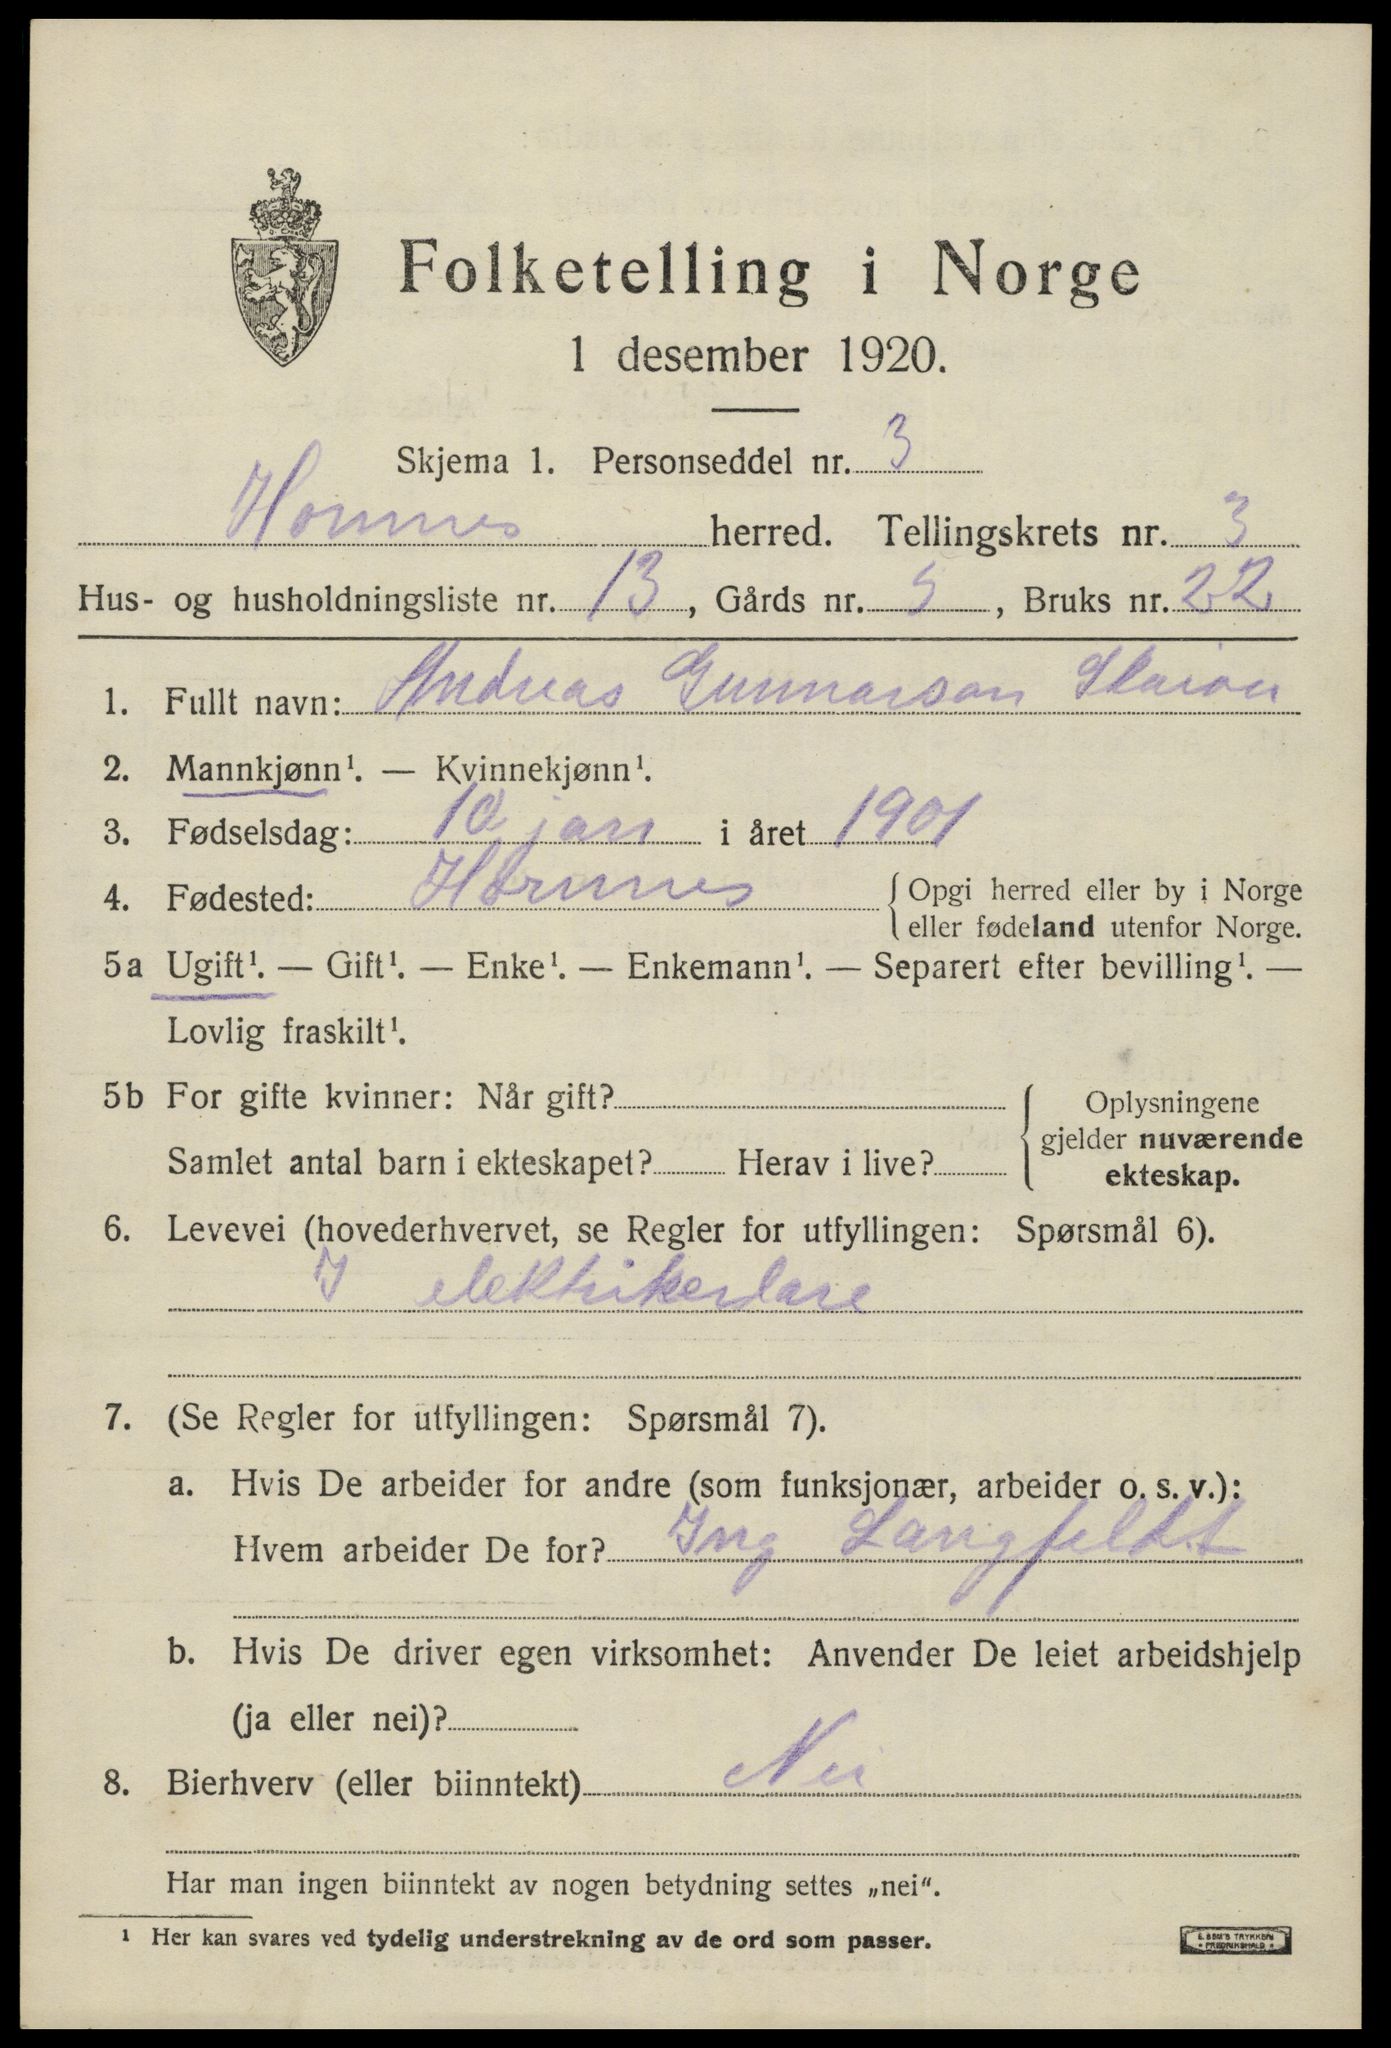 Folketelling i Norge
1 desember 1920.
Skjema 1. Personseddel nr. 3
Hornnes herred. Tellingskrets nr. 3
Hus- og husholdningsliste nr. 13, Gårds nr. 5, Bruks nr. 22
1. Fullt navn: Andreas Gunnarson
2. Mannkjønn¹. — Kvinnekjønn¹.
3. Fødselsdag: 10 jan i året 1901
4. Fødested: Hornnes { Opgi herred eller by i Norge
eller fødeland utenfor Norge.
5a Ugift¹. — Gift¹. — Enke¹. — Enkemann¹. — Separert efter bevilling¹. —
Lovlig fraskilt¹.
5b For gifte kvinner: Når gift?
Samlet antal barn i ekteskapet? Herav i live?
Oplysningene
gjelder nuværende
ekteskap.
6. Levevei (hovederhvervet, se Regler for utfyllingen: Spørsmål 6).
I elektrikerlære
7. (Se Regler for utfyllingen: Spørsmål 7).
a. Hvis De arbeider for andre (som funksjonær, arbeider o. s. v.):
Hvem arbeider De for? Ing Langfeldt
b. Hvis De driver egen virksomhet: Anvender De leiet arbeidshjelp
(ja eller nei)?
8. Bierhverv (eller biinntekt) Nei
Har man ingen biinntekt av nogen betydning settes „nei“.
¹ Her kan svares ved tydelig understrekning av de ord som passer.
E. SEM'S TRYKKERI
FREDRIKSHALD